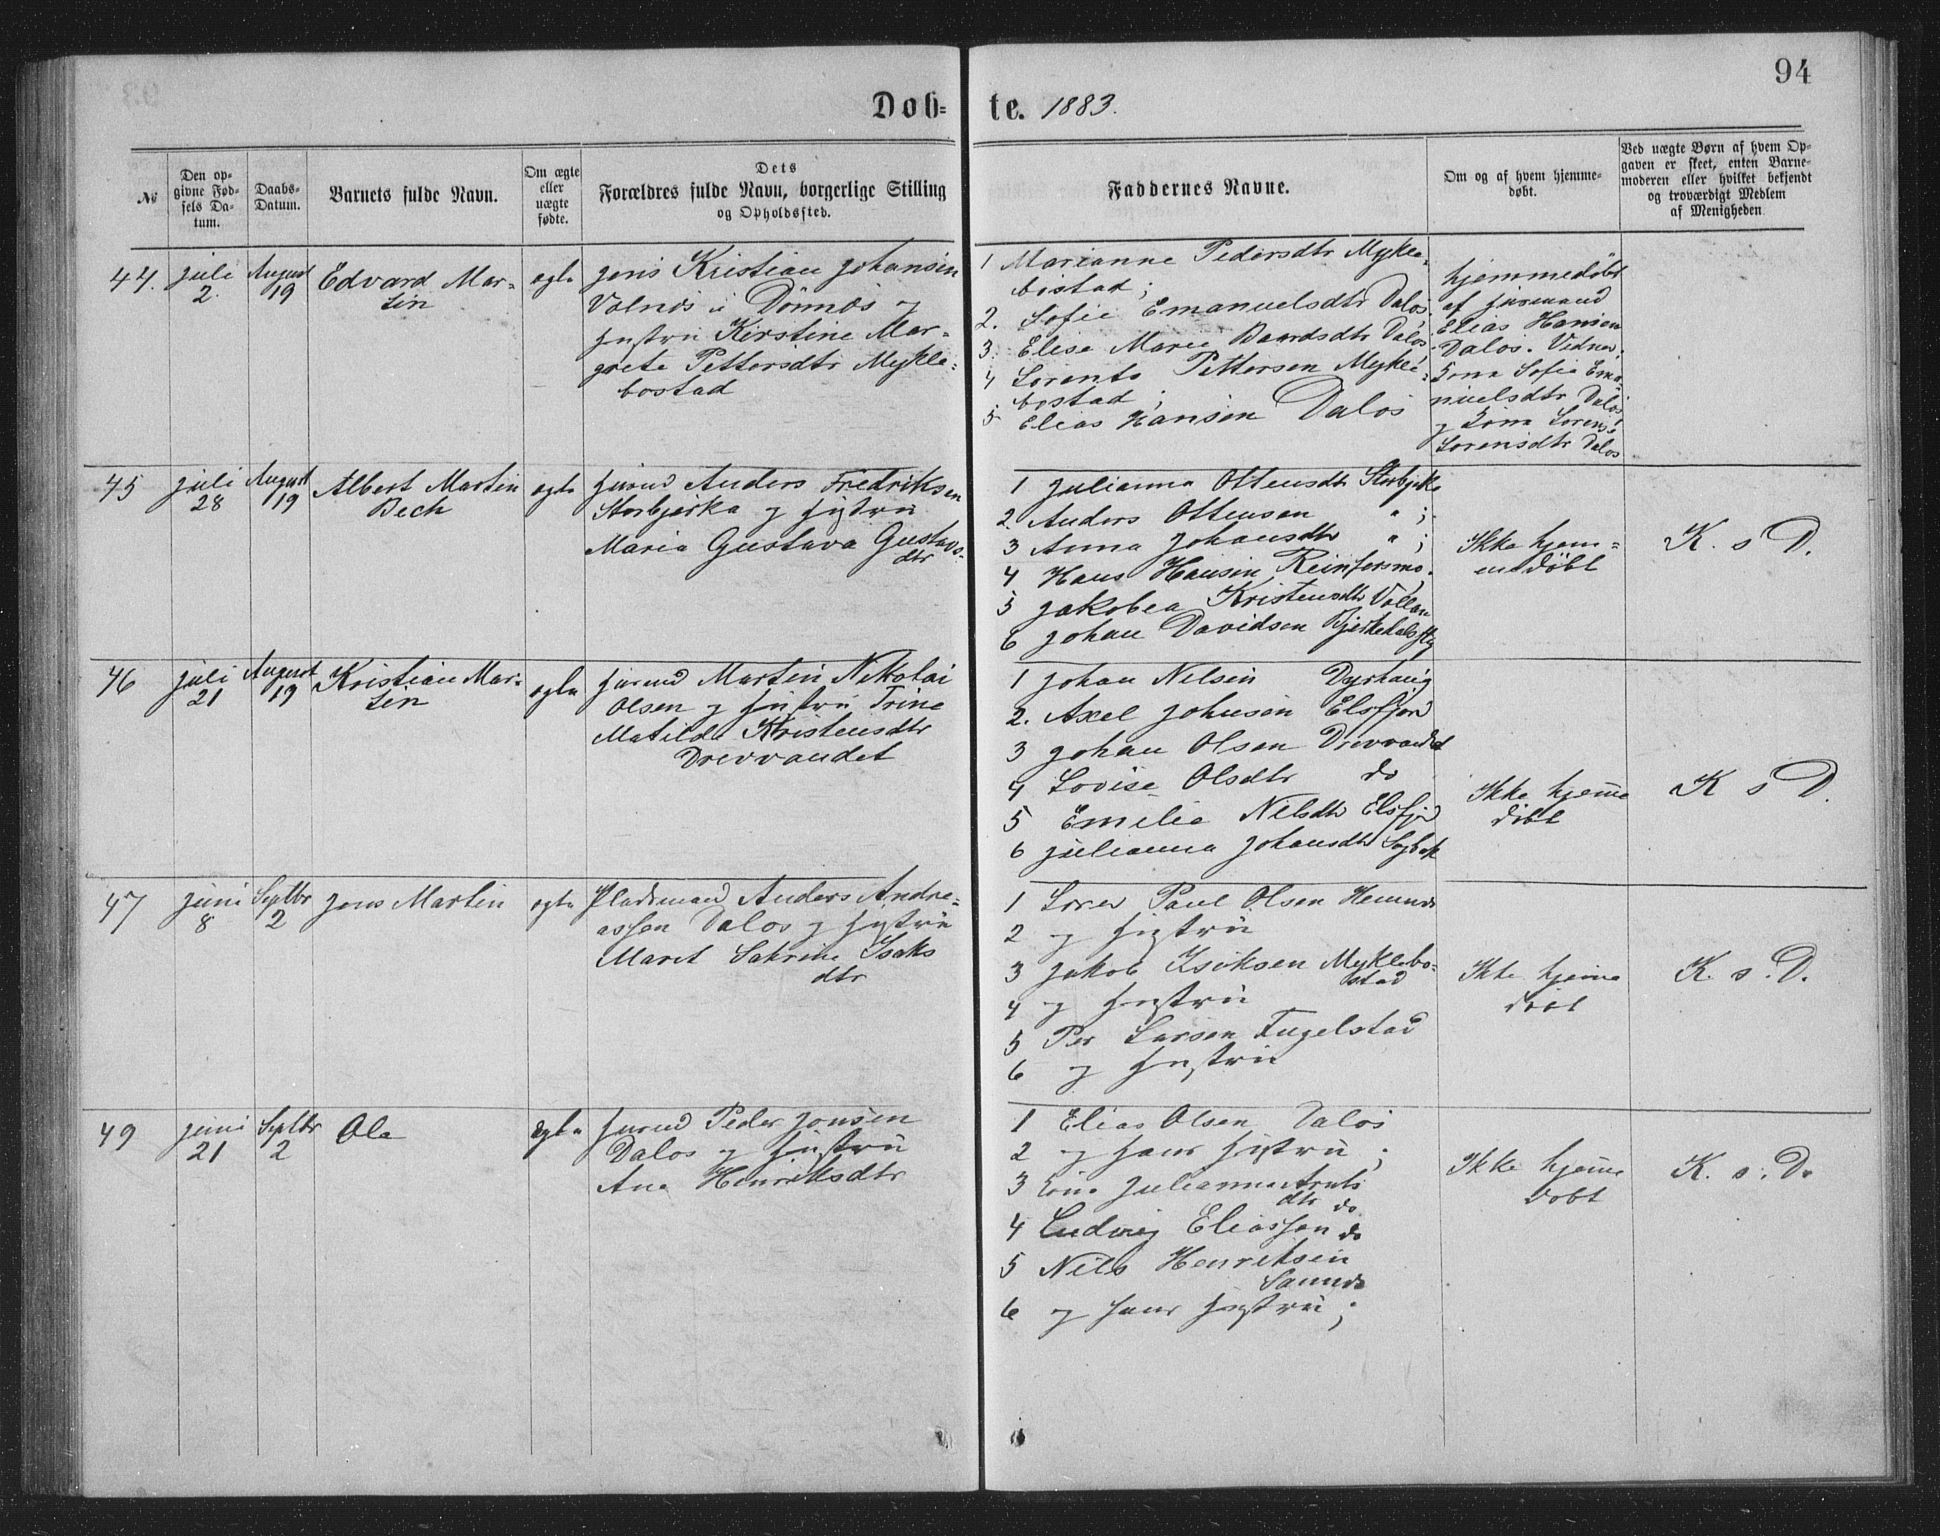 94
Døb= te. 1883.
№
Den op-
givne Fød-
sels Da-
tum.
Daabs-
Datum.
Barnets fulde Navn.
Om ægte
eller
uægte
fødte.
Dets
Forældres fulde Navn, borgerlige Stilling
og Opholdssted.
Faddernes Navne.
Om og af hvem hjemme-
døbt.
Ved uægte Børn af hvem Op-
gaven er skeet, enten Barne-
moderen eller hvilket bekjendt
og troværdigt Medlem
af Menigheden
44.
juli
2.
August
19
Edvard Mar-
tin
ægte
Jens Kristian Johansen
i Dønnæs og
hustru Kirstine Mar-
grete Pettersdtr Mykle-
bostad
1 Marianne Pedersdtr Mykle-
bostad;
2. Sofie Emanuelsdtr Dalos
3. Elise Marie Baardsdtr Dalos
4 Lorents Pettersen Mykle-
bostad;
5 Elias Hansen Dalos
hjemmedøbt
af
Elias Hansen
Dalos. Vidner.
Kona Sofie Ema-
nuelsdtr Dalos
og Kona
Sorensdtr Dalos
45
juli
28
August
19
Albert Martin
Bech
ægte
Anders Fredriksen
Storbjerka og hustru
Maria Gustava Gustavs-
dtr
1 Julianna Ottensdtr Storbjerka
2. Anders Ottensen " ;
3 Anna Johansdtr " ;
4 Hans Hansen Reinforsmo.
5 Jakobea Kristensdtr
6 Johan Davidsen
Ikke hjem-
medøbt
K. s D.
46
juli
21
August
19
Kristian Mar-
tin
ægte
Martin Nikolai
Olsen og hustru Trine
Matilde Kristensdtr
Drevvandet
1 Johan Nilsen Dyrhaug
2. Axel Johnsen Elsfjord
3 Johan Olsen Drevvandet
4 Lovise Olsdtr do
5 Emilie Nilsdtr Elsfjord
6 Julianna Johansdtr
Ikke hjemme
døbt
K s D.
47
juni
8
Septbr
2
Jens Martin
ægte
Pladsmand Anders Andre-
assen Dalos og hustru
Maret Katrine Isaks
dtr
1 Paul Olsen Hemnes
2 og hustru
3 Jakob Isaksen Myklebo-
stad
4 og hustru
5 Per Larsen Fugelstad
6 og hustru
Ikke hjemme
døbt
K. s. D.
49
juni
21
Septbr
2
Ole
ægte
Peder Jonsen
Dalos og hustru
Ane Henriksdtr
1 Elias Olsen Dalos
2 og hans hustru;
3 Kone Julianna
dtr do
4 Ludvig Eliassen do
5 Nils Henriksen
6 og hans hustru;
Ikke hjemme
døbt
K. s. D.